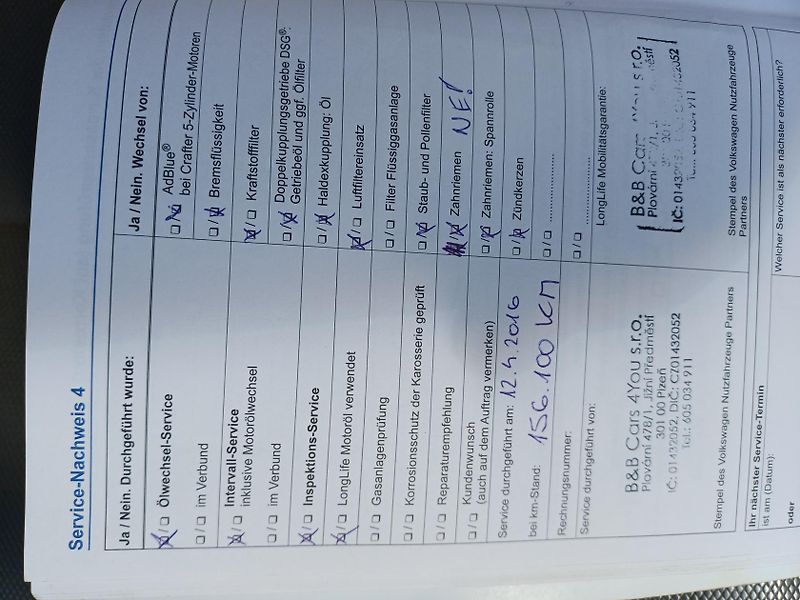 Service-Nachweis 4
Ja / Nein. Durchgeführt wurde:
Ölwechsel-Service
im Verbund
Intervall-Service
inklusive Motorölwechsel
im Verbund
Inspektions-Service
LongLife Motoröl verwendet
Gasanlagenprüfung
Korrosionsschutz der Karosserie geprüft
Reparaturempfehlung
Kundenwunsch
(auch auf dem Auftrag vermerken)
Service durchgeführt am: 12.4.2016
bei km-Stand: 156.100 KM
Rechnungsnummer:
Service durchgeführt von:
B&B Cars 4You s.r.o.
Plovární 478/1, Jižní Předměstí
301 00 Plzeň
IČ: 01432052, DIČ: CZ01432052
Tel.: 605 034 911
Stempel des Volkswagen Nutzfahrzeuge Partners
Ihr nächster Service-Termin
ist am (Datum):
oder
Ja / Nein. Wechsel von:
AdBlue®
bei Crafter 5-Zylinder-Motoren
Bremsflüssigkeit
Kraftstofffilter
Doppelkupplungsgetriebe DSG®:
Getriebeöl und ggf. Ölfilter
Haldexkupplung: Öl
Luftfiltereinsatz
Filter Flüssiggasanlage
Staub- und Pollenfilter
Zahnriemen NE!
Zahnriemen: Spannrolle
Zündkerzen
LongLife Mobilitätsgarantie:
B&B Cars 4You s.r.o.
Plovární
IČ:
911
Stempel des Volkswagen Nutzfahrzeuge
Partners
Welcher Service ist als nächster erforderlich?